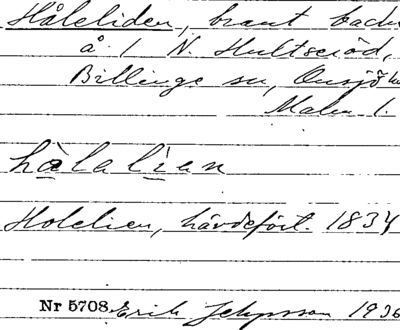 Håleliden, brant backe
å / N. Hultseröd,
Billinge sn, Onsjö hd
Malm l.
hàlalien
Holelien, hävdeført. 1834
Nr 5708 Erik Jepsson 1936